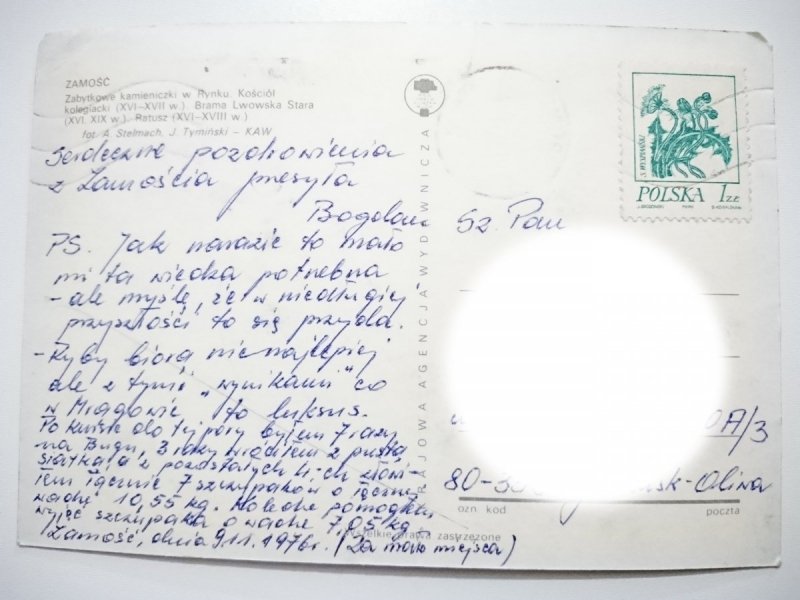 ZAMOŚĆ
Zabytkowe kamieniczki w Rynku. Kościół
kolegiacki (XVI-XVII w.). Brama Lwowska Stara
(XVI, XIX w.). Ratusz (XVI-XVIII w.)
fot. A. Stelmach, J. Tymiński - KAW
Serdeczne pozdrowienia
z Zamościa przesyła
Bogdan
PS. Jak narazie to mało
mi ta wiedza potrzebna
- ale myślę, że w niedługiej
przyszłości to się przyda.
- Ryby biorą nienajlepiej
ale z tymi "wynikami" co
w to luksus.
do tej pory byłem 7 razy
na Bugu, 3 razy wróciłem z pustą
siatką a z pozostałych 4-ch złowi-
łem łącznie 7 szczupaków o łącznej
wadze 10,55 kg. Koledze pomogłem
wyjąć szczupaka o wadze 7,05 kg.
Zamość, dnia 9.11.1976r. (Za mało miejsca)
KRAJOWA AGENCJA WYDAWNICZA
Wszelkie prawa zastrzeżone
S. WYSPIAŃSKI
POLSKA 1 ZŁ
Sz. Pan
0A/3
80-3 sk-Oliwa
ozn. kod poczta